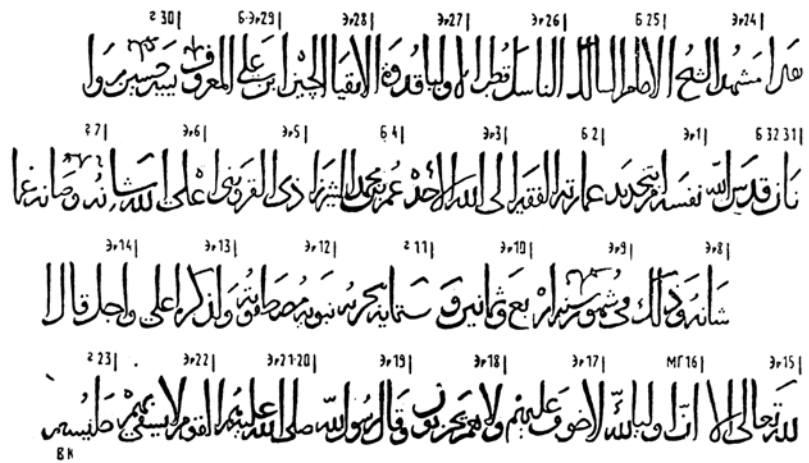 г 30 Б·Эр29 Эр28 Эр27 Эр26 Б 25 Эр24
هذا مشهد الشيخ الامام السالك الناسك قطب الاوليا قدوة الاتقيا الحسين ابن علي المعروف ببير حسين روا
г 7 Эр6 Эр5 Б 4 Эр3 Б 2 Эр1 Б 32 31
نان قدس الله نفسه امر بتجديد عمارته الفقير الى الله الاحد عمر بن محمد الشيرزاذي القزويني اعلى الله شانه وصانه عما
Эр14 Эр13 Эр12 г 11 Эр10 Эр9 Эр8
شانه وذلك في شهور سنه اربع وثمانين وستمايه هجريه نبويه مصطفويه واذكره اعلى واجل قال ا
г 23 Эр22 Эр21-20 Эр19 Эр18 Эр17 МГ16 Эр15
لله تعالى الا ان اوليا الله لا خوف عليهم ولا هم يحزنون وقال رسول الله صلى الله عليه هم القوم لا يشقى بهم جليسهم
ВК